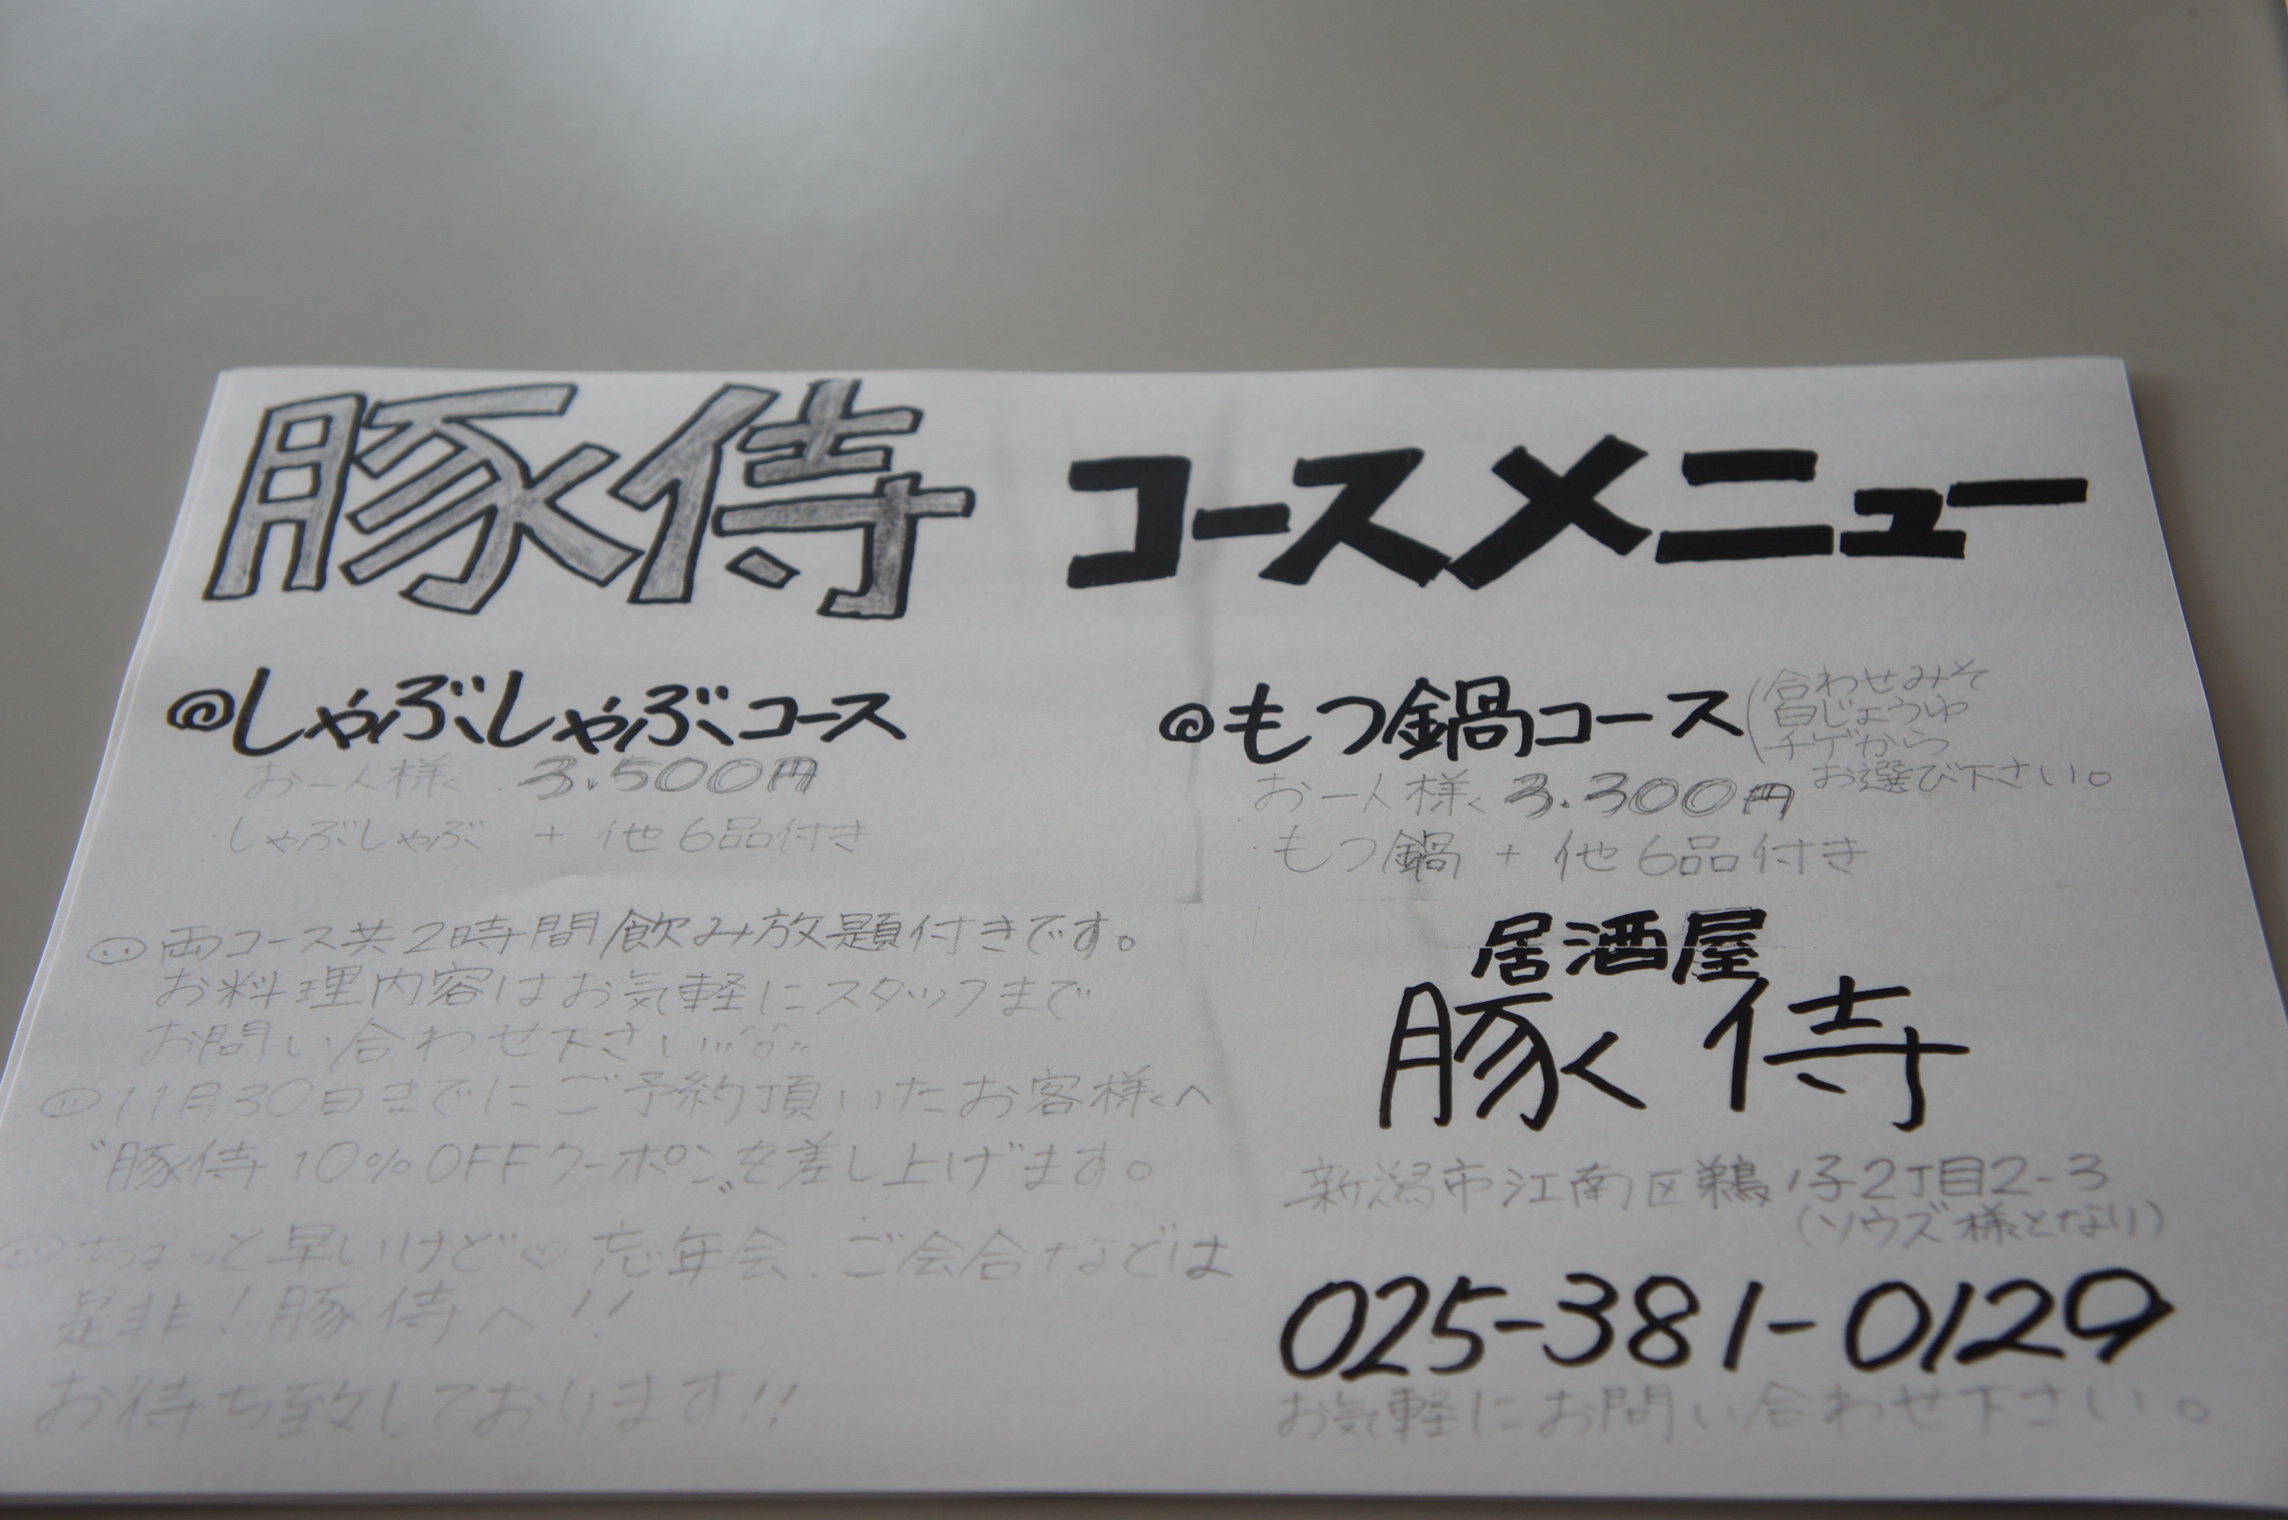 豚侍 コースメニュー
@しゃぶしゃぶコース
お一人様 3.500円
しゃぶしゃぶ + 他6品付き
@もつ鍋コース
(合わせみそ
白じょうゆ
チゲから
お選び下さい。
お一人様 3.300円
もつ鍋 + 他6品付き
両コース共2時間飲み放題付きです。
お料理内容はお気軽にスタッフまで
お問い合わせ下さい!!!^^
11月30日までにご予約頂いたお客様へ
"豚侍10%OFFクーポン"を差し上げます。
ちょっと早いけど♡忘年会、ご会合などは
是非!豚侍へ!!
お待ち致しております!!
居酒屋
豚侍
新潟市江南区鵜ノ子2丁目2-3
(ソウズ様となり)
025-381-0129
お気軽にお問い合わせ下さい。